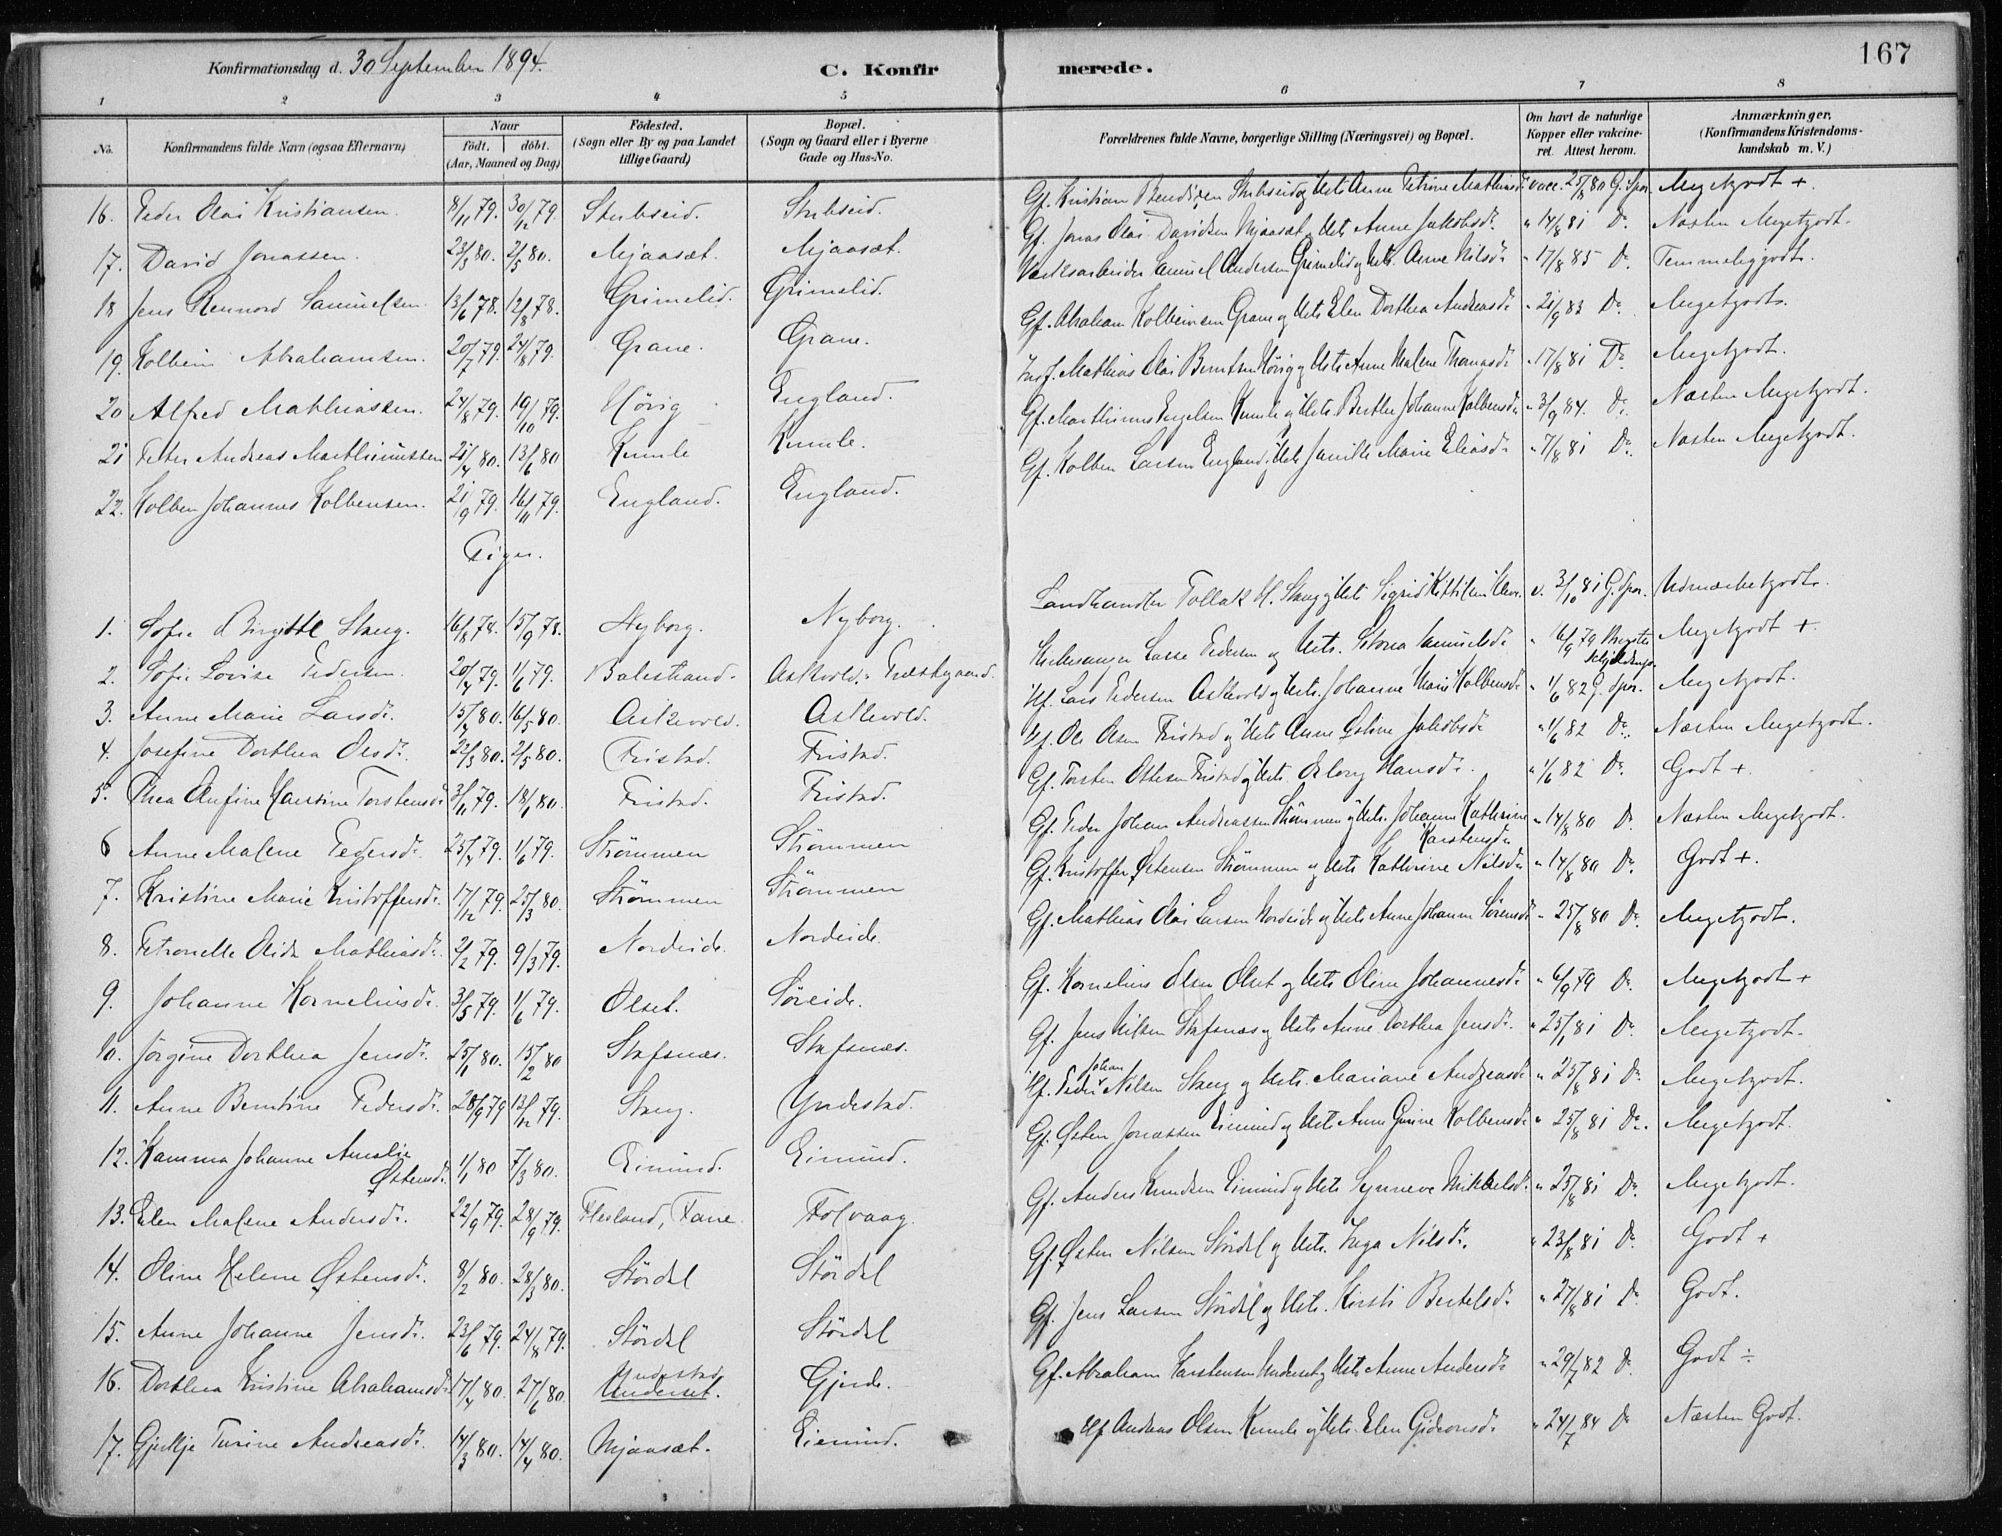 167
Konfirmationsdag d. 30 September 1894.
C. Konfirmerede.
1 2 3 4 5 6 7 8
No. Konfirmandens fulde Navn (ogsaa Efternavn) Naar født. døbt. (Aar, Maaned og Dag) Fødested. (Sogn eller By og paa Landet tillige Gaard) Bopæl. (Sogn og Gaard eller i Byerne Gade og Hus-No. Forældrenes fulde Navne, borgerlige Stilling (Næringsvei) og Bopæl. Om havt de naturlige Kopper eller vaccineret. Attest herom. Anmærkninger. (Konfirmandens Kristendomskundskab m. V.)
16. Peder Olai Kristiansen. 8/11 79. 30/12 79. Stubseid. Stubseid. Gf. Kristian Bendixen Stubseid og Ust. Anne Petrine Mathiasd. vacc. 25/8 80 G. Spor. Megetgodt +
17. David Jonassen. 23/3 80. 2/5 80. Mjaasæt. Mjaasæt. Gf. Jonas Olai Davidsen Mjaasæt og Hst. Anne Jakobsdr. " 14/8 81 Do. Næsten Megetgodt.
18 Jens Rennord Samuelsen. 13/6 78. 12/8 78. Grimelid. Grimelid. Værksarbeider Samuel Andersen Grimelid og Hst. Anne Nilsdr " 17/8 85 Do. Temmeliggodt.
19. Kolbein Abrahamsen. 20/7 79. 24/8 79. Grane. Grane. Gf. Abraham Kolbeinsen Grane og Hst. Elen Dorthea Andreasdr " 21/9 83 Do. Megetgodt.
20 Alfred Mathiassen. 24/8 79. 19/10 79. Hørig England. Inf. Mathias Olai Berntsen Hørig og Hst. Anne Malene Thomasdr " 17/8 81 Do. Megetgodt.
21 Petter Andreas Marthinussen 21/4 80. 13/6 80 Kumle Kumle. Gf. Marthinus Engelsen Kumle og Hst. Berthe Johanne Kolbensdr " 3/9 84. Do. Næsten Megetgodt.
22. Kolben Johannes Kolbensen. 21/9 79. 16/11 79. England. England. Gf. Kolben Larsen England og Hst. Jamille Marie Eliasdr " 7/8 81 Do. Næsten Megetgodt.
Piger.
1. Sofie Birgitte Skeug. 16/8 78. 15/9 78. Nyborg. Nyborg. Landhandler Tollak H. Skeug og Hst. Sigrid Kittilsen v. 3/10 81 G. Spor. Udmærketgodt.
2. Sofie Lovise Pedersen. 20/4 79. 1/6 79. Balestrand. Askvold, Præstegaard. Kirkesanger Lasse Pedersen og Hst. Samuelsdr " 6/9 79 Megetgodt +
3. Anne Marie Larsdr. 15/4 80. 16/5 80. Askevold. Askevold. Hf. Lars Pedersen Askevold og Hst. Johanne Marie Kolbensdr " 1/6 82 G. Spor. Megetgodt.
4. Josefine Dorthea Olsdr. 22/3 80. 2/5 80. Fristad. Fristad. Hf. Ole Olsen Fristad og Hst. Anne Jakobsdr " 1/6 82 Do. Næsten Megetgodt.
5. Thea Anfine Karstine Torstensdr 3/11 79. 18/1 80. Fristad. Fristad. Gf. Torsten Ottesen Fristad og Hst. Hansdr. " 1/6 82 Do. Godt +
6 Anne Malene Pedersdr. 25/4 79. 1/6 79. Strømmen Strømmen Gf. Peder Johan Andreassen Strømmen og Hst. Johanne Kathrine Karstensdr " 14/8 80 Do. Næsten Megetgodt.
7. Kristine Marie Kristoffersdr. 17/12 79. 25/3 80. Strømmen Strømmen Gf. Kristoffer Østensen Strømmen og Hst. Kathrine Nilsdr " 14/8 80 Do. Godt +.
8. Petronelle Olide Mathiasdr. 2/2 79. 9/3 79. Nordeide. Nordeide. Gf. Mathias Olai Larsen Nordeide og Hst. Anne Johanne Sørensdr " 25/8 80 Do. Megetgodt.
9. Johanne Korneliusdr. 3/5 79. 1/6 79. Olset. Søreide. Gf. Kornelius Olsen Olset og Hst. Oline Johannesdr " 6/9 79 Do. Megetgodt +
10. Jørgine Dorthea Jensdr. 25/1 80. 15/2 80 Stafsnæs. Stafsnæs. Gf. Jens Nilsen Stafsnæs og Hst. Anne Dorthea Jensdr. " 25/1 81 Do. Megetgodt.
11. Anne Bentine Pedersdr. 28/9 79 13/12 79. Skeug. Yndestad. Hf. Peder Johan Nilsen Skeug og Hst. Mariane Andreasdr " 25/8 81 Do. Megetgodt.
12. Kamma Johanne Amalie Østensdr. 1/1 80 7/3 80. Eimind. Eimind. Gf. Østen Jonassen Eimind og Hst. Anne Gurine Kolbensdr " 25/8 81 Do. Megetgodt.
13. Elen Malene Andersdr. 22/9 79. 28/9 79. Flesland, Fane. Folvaag. Gf. Anders Knudsen Eimind og Hst. Synneve Mikkelsdr " 25/8 81 Do. Megetgodt.
14. Oline Helene Østensdr. 8/2 80. 28/3 80. Størdal Størdal Gf. Østen Nilsen Størdal og Hst. Inga Nilsdr. " 23/8 81 Do. Godt +
15. Anne Johanne Jensdr. 23/6 79. 24/8 79. Størdal Størdal Gf. Jens Larsen Størdal og Hst. Kirsti Bertelsdr. " 27/8 81 Do. Godt.
16. Dorthea Kristine Abrahamsdr 17/4 80. 27/6 80. Yndestad Underset. Gjerde. Gf. Abraham Karstensen Underset og Hst. Anne Andersdr " 29/7 82 Do. Godt ÷
17. Gjertje Turine Andreasdr. 14/3 80. 14/4 80. Mjaasæt. Eimind. Hf. Andreas Olsen Kumle og Hst. Elen Gideonsdr. " 24/7 84 Do Næsten Godt.